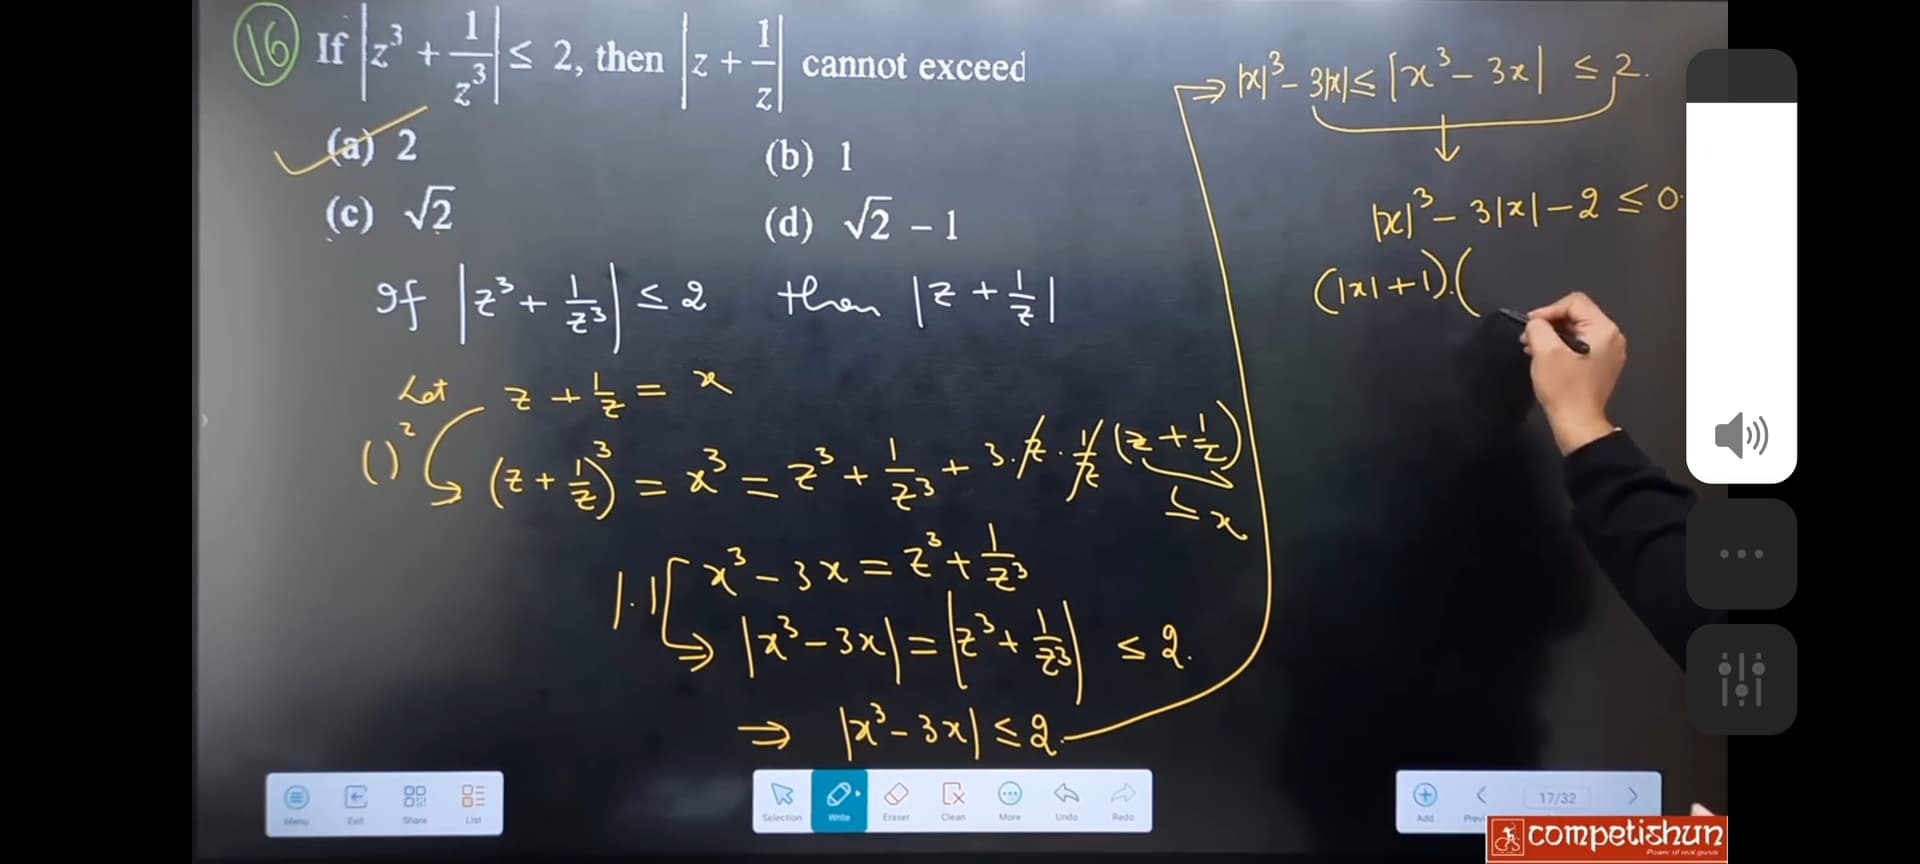 16 If |z³ + 1/z³| ≤ 2, then |z + 1/z| cannot exceed
(a) 2 (b) 1
(c) √2 (d) √2 − 1
If |z³ + 1/z³| ≤ 2 then |z + 1/z|
Let z + 1/z = x
()² (z + 1/z)³ = x³ = z³ + 1/z³ + 3.z.1/z (z + 1/z)
x
|.| x³ − 3x = z³ + 1/z³
⇒ |x³ − 3x| = |z³ + 1/z³| ≤ 2.
⇒ |x³ − 3x| ≤ 2.
⇒ |x|³ − 3|x| ≤ |x³ − 3x| ≤ 2.
|x|³ − 3|x| − 2 ≤ 0.
(|x| + 1).(
Menu Exit Share List
Selection Write Eraser Clean More Undo Redo
Add Previ 17/32
competishun